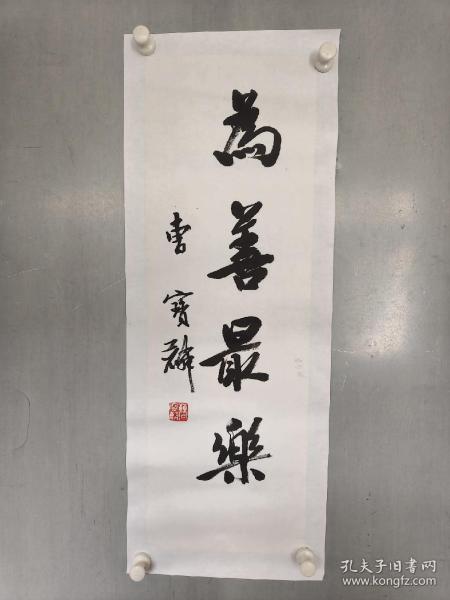 為善最樂
曹寶麟
孔夫子旧书网
www.kongfz.com